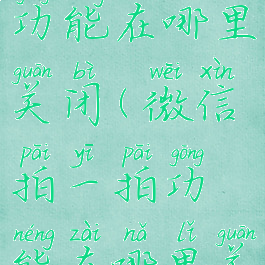 功能在哪里
guān bì wēi xìn
关闭(微信
pāi yī pāi gōng
拍一拍功
néng zài nǎ lǐ guān
能在哪里关